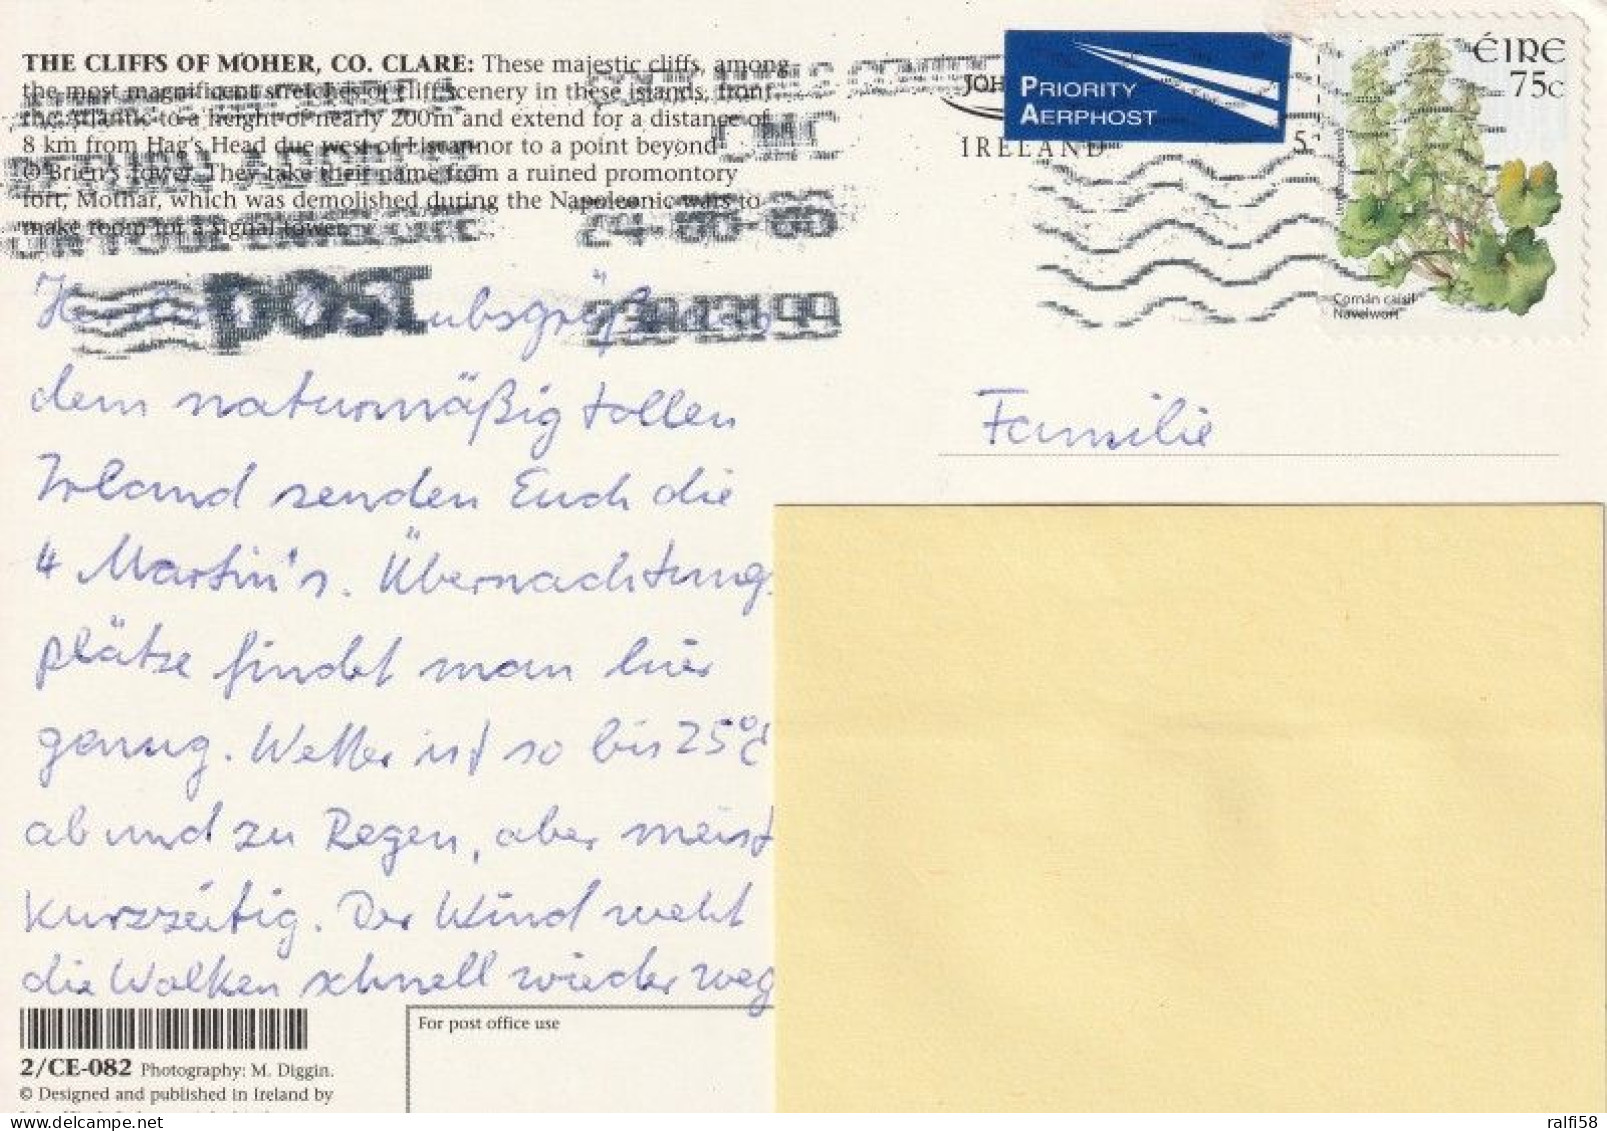 THE CLIFFS OF MOHER, CO. CLARE: These majestic cliffs, among
the most magnificent stretches of cliff scenery in these islands, front
the Atlantic to a height of nearly 200m and extend for a distance of
8 km from Hag's Head due west of Liscannor to a point beyond
O'Brien's Tower. They take their name from a ruined promontory
fort, Mothar, which was demolished during the Napoleonic wars to
make room for a signal tower.
RETURN ADDRESS
24-08-06
post
JOH
IRELAND
5
PRIORITY
AERPHOST
ÉIRE
75c
Cornán caisil
Navelwort
dem naturmäßig tollen
Irland senden Euch die
4 Martin's. Übernachtung
plätze findet man hier
genug. Wetter ist so bis 25°C
ab und zu Regen, aber meist
kurzzeitig. Der Wind weht
die Wolken schnell wieder weg
Familie
For post office use
2/CE-082 Photography: M. Diggin.
© Designed and published in Ireland by
ralfi58